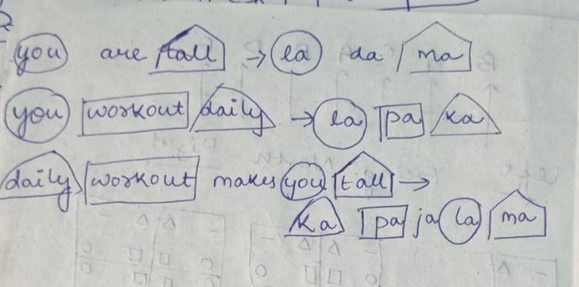 you are tall → la da ma
you workout daily → la pa ka
daily workout makes you tall →
ka pa ja la ma